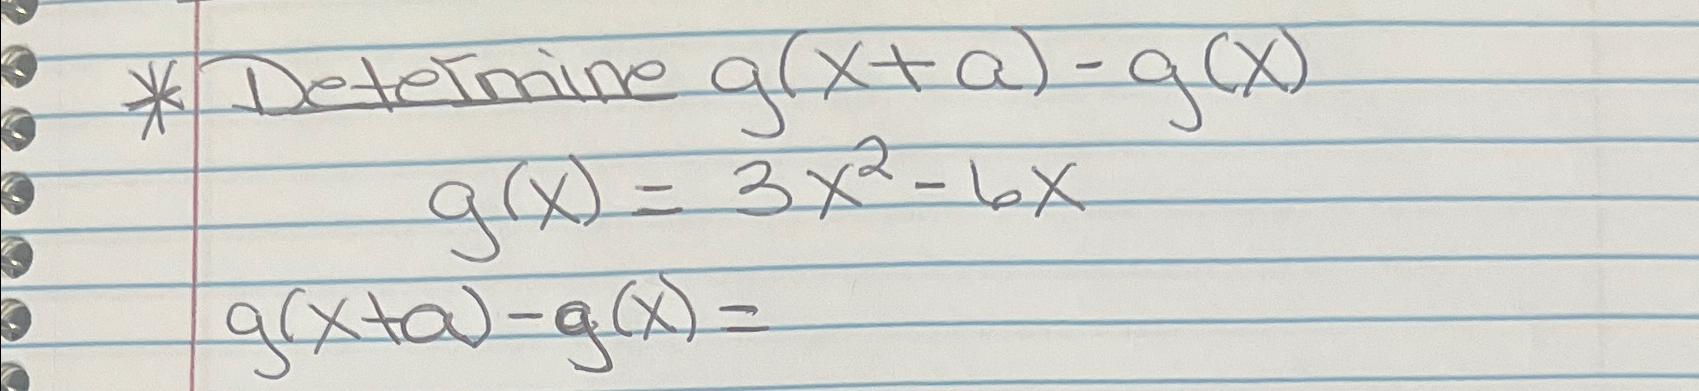 * Determine g(x+a)-g(x)
g(x) = 3x² - 6x
g(x+a)-g(x) =